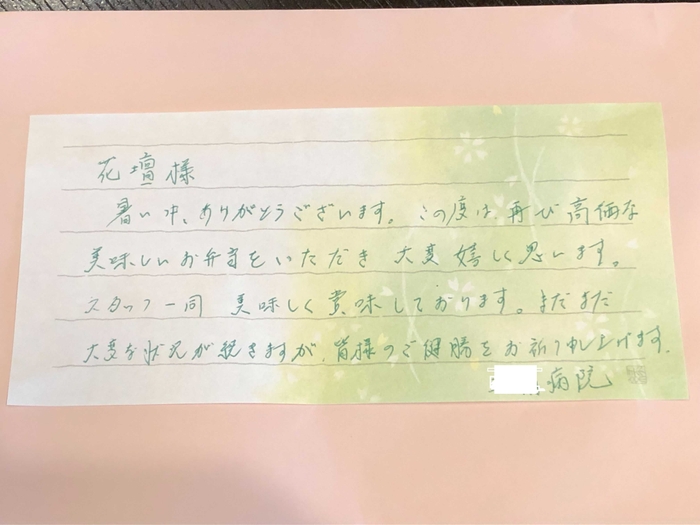 花壇様
暑い中、ありがとうございます。この度は、再び高価な
美味しいお弁当をいただき 大変嬉しく思います。
スタッフ一同 美味しく賞味しております。まだまだ
大変な状況が続きますが、皆様のご健勝をお祈り申し上げます。
病院